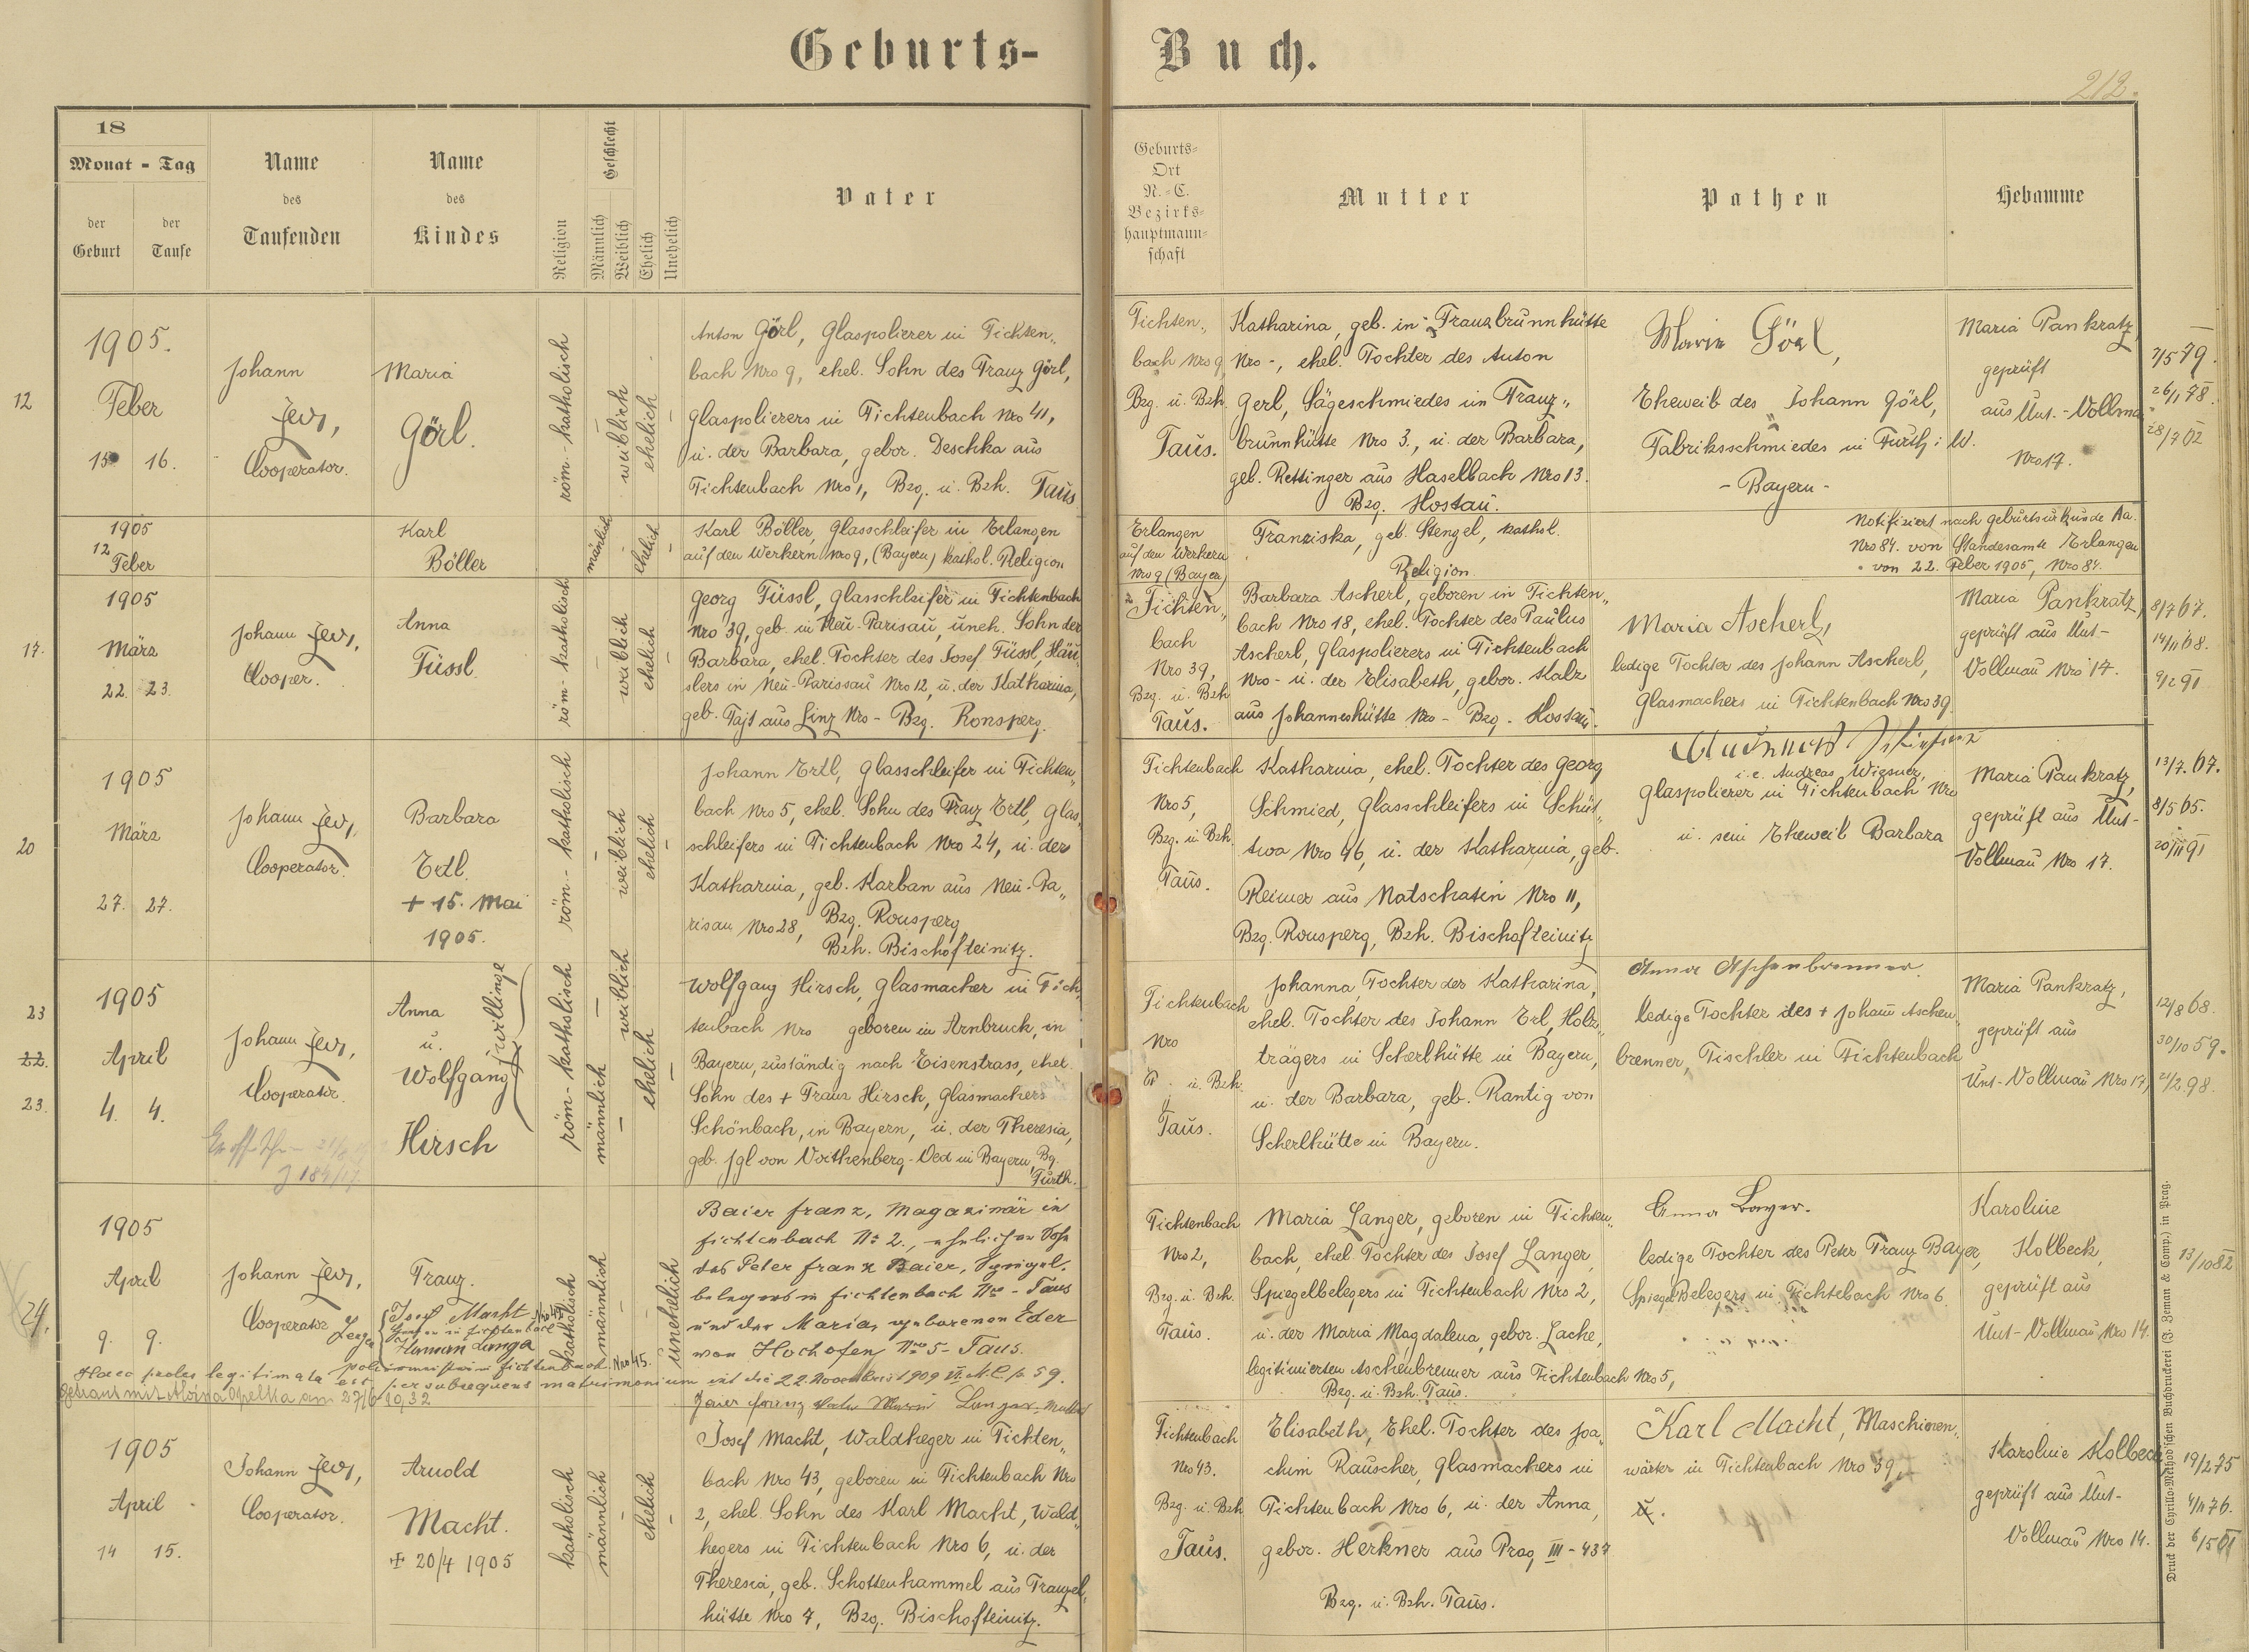 Geburts-Buch.
212.
18
Monat - Tag
der Geburt
der Taufe
Name des Taufenden
Name des Kindes
Religion
Geschlecht
Männlich
Weiblich
Ehelich
Unehelich
Vater
Geburts-
Ort
N.-C.
Bezirks-
hauptmann-
schaft
Mutter
Pathen
Hebamme
12
1905.
Feber
15 16.
Johann
Jeřj,
Cooperator.
Maria
Görl.
röm.-katholisch
weiblich
ehelich
Anton Görl, Glaspolierer in Fichten„
bach Nro 9, ehel. Sohn des Franz Görl,
Glaspolierers in Fichtenbach Nro 41,
u. der Barbara, gebor. Deschka aus
Fichtenbach Nro 1, Bzg. u. Bzh. Taus
Fichten„
bach Nro 9
Bzg. u. Bzh.
Taus.
Katharina, geb. in Franzbrunnhütte
Nro -, ehel. Tochter des Anton
Gerl, Sägeschmiedes in Franz„
brunnhütte Nro 3., u. der Barbara,
geb. Rettinger aus Haselbach Nro 13.
Bzg. Hostau.
Maria Görl,
Eheweib des Johann Görl,
Fabriksschmiedes in Furth i. W.
- Bayern -
Maria Pankratz,
geprüft
aus Unt.-Vollmau
Nro 17.
7/5 79.
26/1 78.
28/7 02
1905
12
Feber
Karl
Böller
männlich
ehelich
Karl Böller, Glasschleifer in Erlangen
auf den Werkern Nro 9, (Bayern) kathol. Religion
Erlangen
auf den Werkern
Nro 9 (Bayern)
Franziska, geb. Stengel, kathol.
Religion
Notifiziert nach Geburtsurkunde Aa.
Nro 84. von Standesamte Erlangen
von 22. Feber 1905, Nro 84.
17.
1905
März
22. 23.
Johann Jeřj,
Cooper.
Anna
Füssl.
röm-katholisch
weiblich
ehelich
Georg Füssl, Glasschleifer in Fichtenbach
Nro 39, geb. in Neu-Parisau, uneh. Sohn der
Barbara, ehel. Tochter des Josef Füssl, Häu
slers in Neu-Parissau Nro 12, u. der Katharina,
geb. Tajt aus Linz Nro - Bzg. Ronsperg.
Fichten„
bach
Nro 39,
Bzg. u. Bzh
Taus.
Barbara Ascherl, geboren in Fichten„
bach Nro 18, ehel. Tochter des Paulus
Ascherl, Glaspolierers in Fichtenbach
Nro - u. der Elisabeth, gebor. Kalz
aus Johanneshütte Nro - Bzg. Hostau.
Maria Ascherl,
ledige Tochter des Johann Ascherl,
Glasmachers in Fichtenbach Nro 39
Maria Pankratz,
geprüft aus Unt-
Vollmau Nro 17.
8/7 67.
14/11 68.
9/2 91
20
1905
März
27. 27.
Johann Jeřj,
Cooperator.
Barbara
Ertl.
+ 15. Mai
1905.
röm.-katholisch
weiblich
ehelich
Johann Ertl, Glasschleifer in Fichten„
bach Nro 5, ehel. Sohn des Franz Ertl, Glas„
schleifers in Fichtenbach Nro 24, u. der
Katharina, geb. Karban aus Neu-Pa„
risau Nro 28, Bzg. Ronsperg
Bzh. Bischofteinitz.
Fichtenbach
Nro 5,
Bzg. u. Bzh.
Taus.
Katharina, ehel. Tochter des Georg
Schmied, Glasschleifers in Schüt„
twa Nro 46, u. der Katharina, geb.
Reimer aus Natschatin Nro 11,
Bzg. Ronsperg, Bzh. Bischofteinitz
i.e. Andreas Wiesner,
Glaspolierer in Fichtenbach Nro
u. sein Eheweib Barbara
Maria Pankratz,
geprüft aus Unt-
Vollmau Nro 17.
13/7. 67.
8/5 65.
20/11 91
23
22.
23.
1905
April
4. 4.
Johann Jeřj,
Cooperator.
Anna
u.
Wolfgang
Zwillinge
Hirsch
röm-katholisch
männlich
weiblich
ehelich
Wolfgang Hirsch, Glasmacher in Fich„
tenbach Nro geboren in Arnbruck, in
Bayern, zuständig nach Eisenstrass, ehel.
Sohn des + Franz Hirsch, Glasmachers
Schönbach, in Bayern, u. der Theresia,
geb. Jgl von Voithenberg-Oed in Bayern, Bg.
Furth.
Fichtenbach
Nro
u. Bzh.
Taus.
Johanna, Tochter der Katharina,
ehel. Tochter des Johann Erl, Holz„
trägers in Scherlhütte in Bayern,
u. der Barbara, geb. Rantig von
Scherlhütte in Bayern.
Anna Aschenbrenner.
ledige Tochter des + Johann Aschen„
brenner, Tischler in Fichtenbach
Maria Pankratz,
geprüft aus
Unt-Vollmau Nro 17,
12/8 68.
30/10 59.
21/2 98.
24.
1905
April
9. 9.
Johann Jeřj,
Cooperator
Franz.
Zeugen
Josef Macht
katholisch
männlich
unehelich
Baier Franz, Magazinär in
Fichtenbach No 2., ehelicher Sohn
des Peter Franz Baier, Spiegel-
belegers in Fichtenbach No - Taus
und der Maria, geborenen Eder
von Hochofen Nro 5 - Taus.
Haec proles legitimata est per subsequens matrimonium
Getraut mit Aloisia Opelka am 27/6 1932
Fichtenbach
Nro 2,
Bzg. u. Bzh.
Taus.
Maria Langer, geboren in Fichten„
bach, ehel Tochter des Josef Langer,
Spiegelbelegers in Fichtenbach Nro 2,
u. der Maria Magdalena, gebor. Lache,
legitimierten Aschenbrenner aus Fichtenbach Nro 5,
Bzg. u. Bzh. Taus.
Anna Bayer.
ledige Tochter des Peter Franz Bayer,
Spiegel Belegers in Fichtebach Nro 6.
Karoline
Kolbeck,
geprüft aus
Unt-Vollmau Nro 14.
13/10 82
1905
April
14 15.
Johann Jeřj,
Cooperator.
Arnold
Macht.
+ 20/4 1905
katholisch
männlich
ehelich
Josef Macht, Waldheger in Fichten„
bach Nro 43, geboren in Fichtenbach Nro
2, ehel. Sohn des Karl Macht, Wald„
hegers in Fichtenbach Nro 6, u. der
Theresia, geb. Schottenhammel aus Franzel„
hütte Nro 7, Bzg. Bischofteinitz.
Fichtenbach
Nro 43.
Bzg. u. Bzh
Taus.
Elisabeth, Ehel. Tochter des Joa„
chim Rauscher, Glasmachers in
Fichtenbach Nro 6, u. der Anna,
gebor. Herkner aus Prag III - 437
Bzg. u. Bzh. Taus.
Karl Macht, Maschinen„
wärter in Fichtenbach Nro 39,
u.
Karoline Kolbeck
geprüft aus Unt-
Vollmau Nro 14.
19/2 75
4/11 76.
Druck der Cyrillo-Method'schen Buchdruckerei (J. Zeman & Comp.) in Prag.